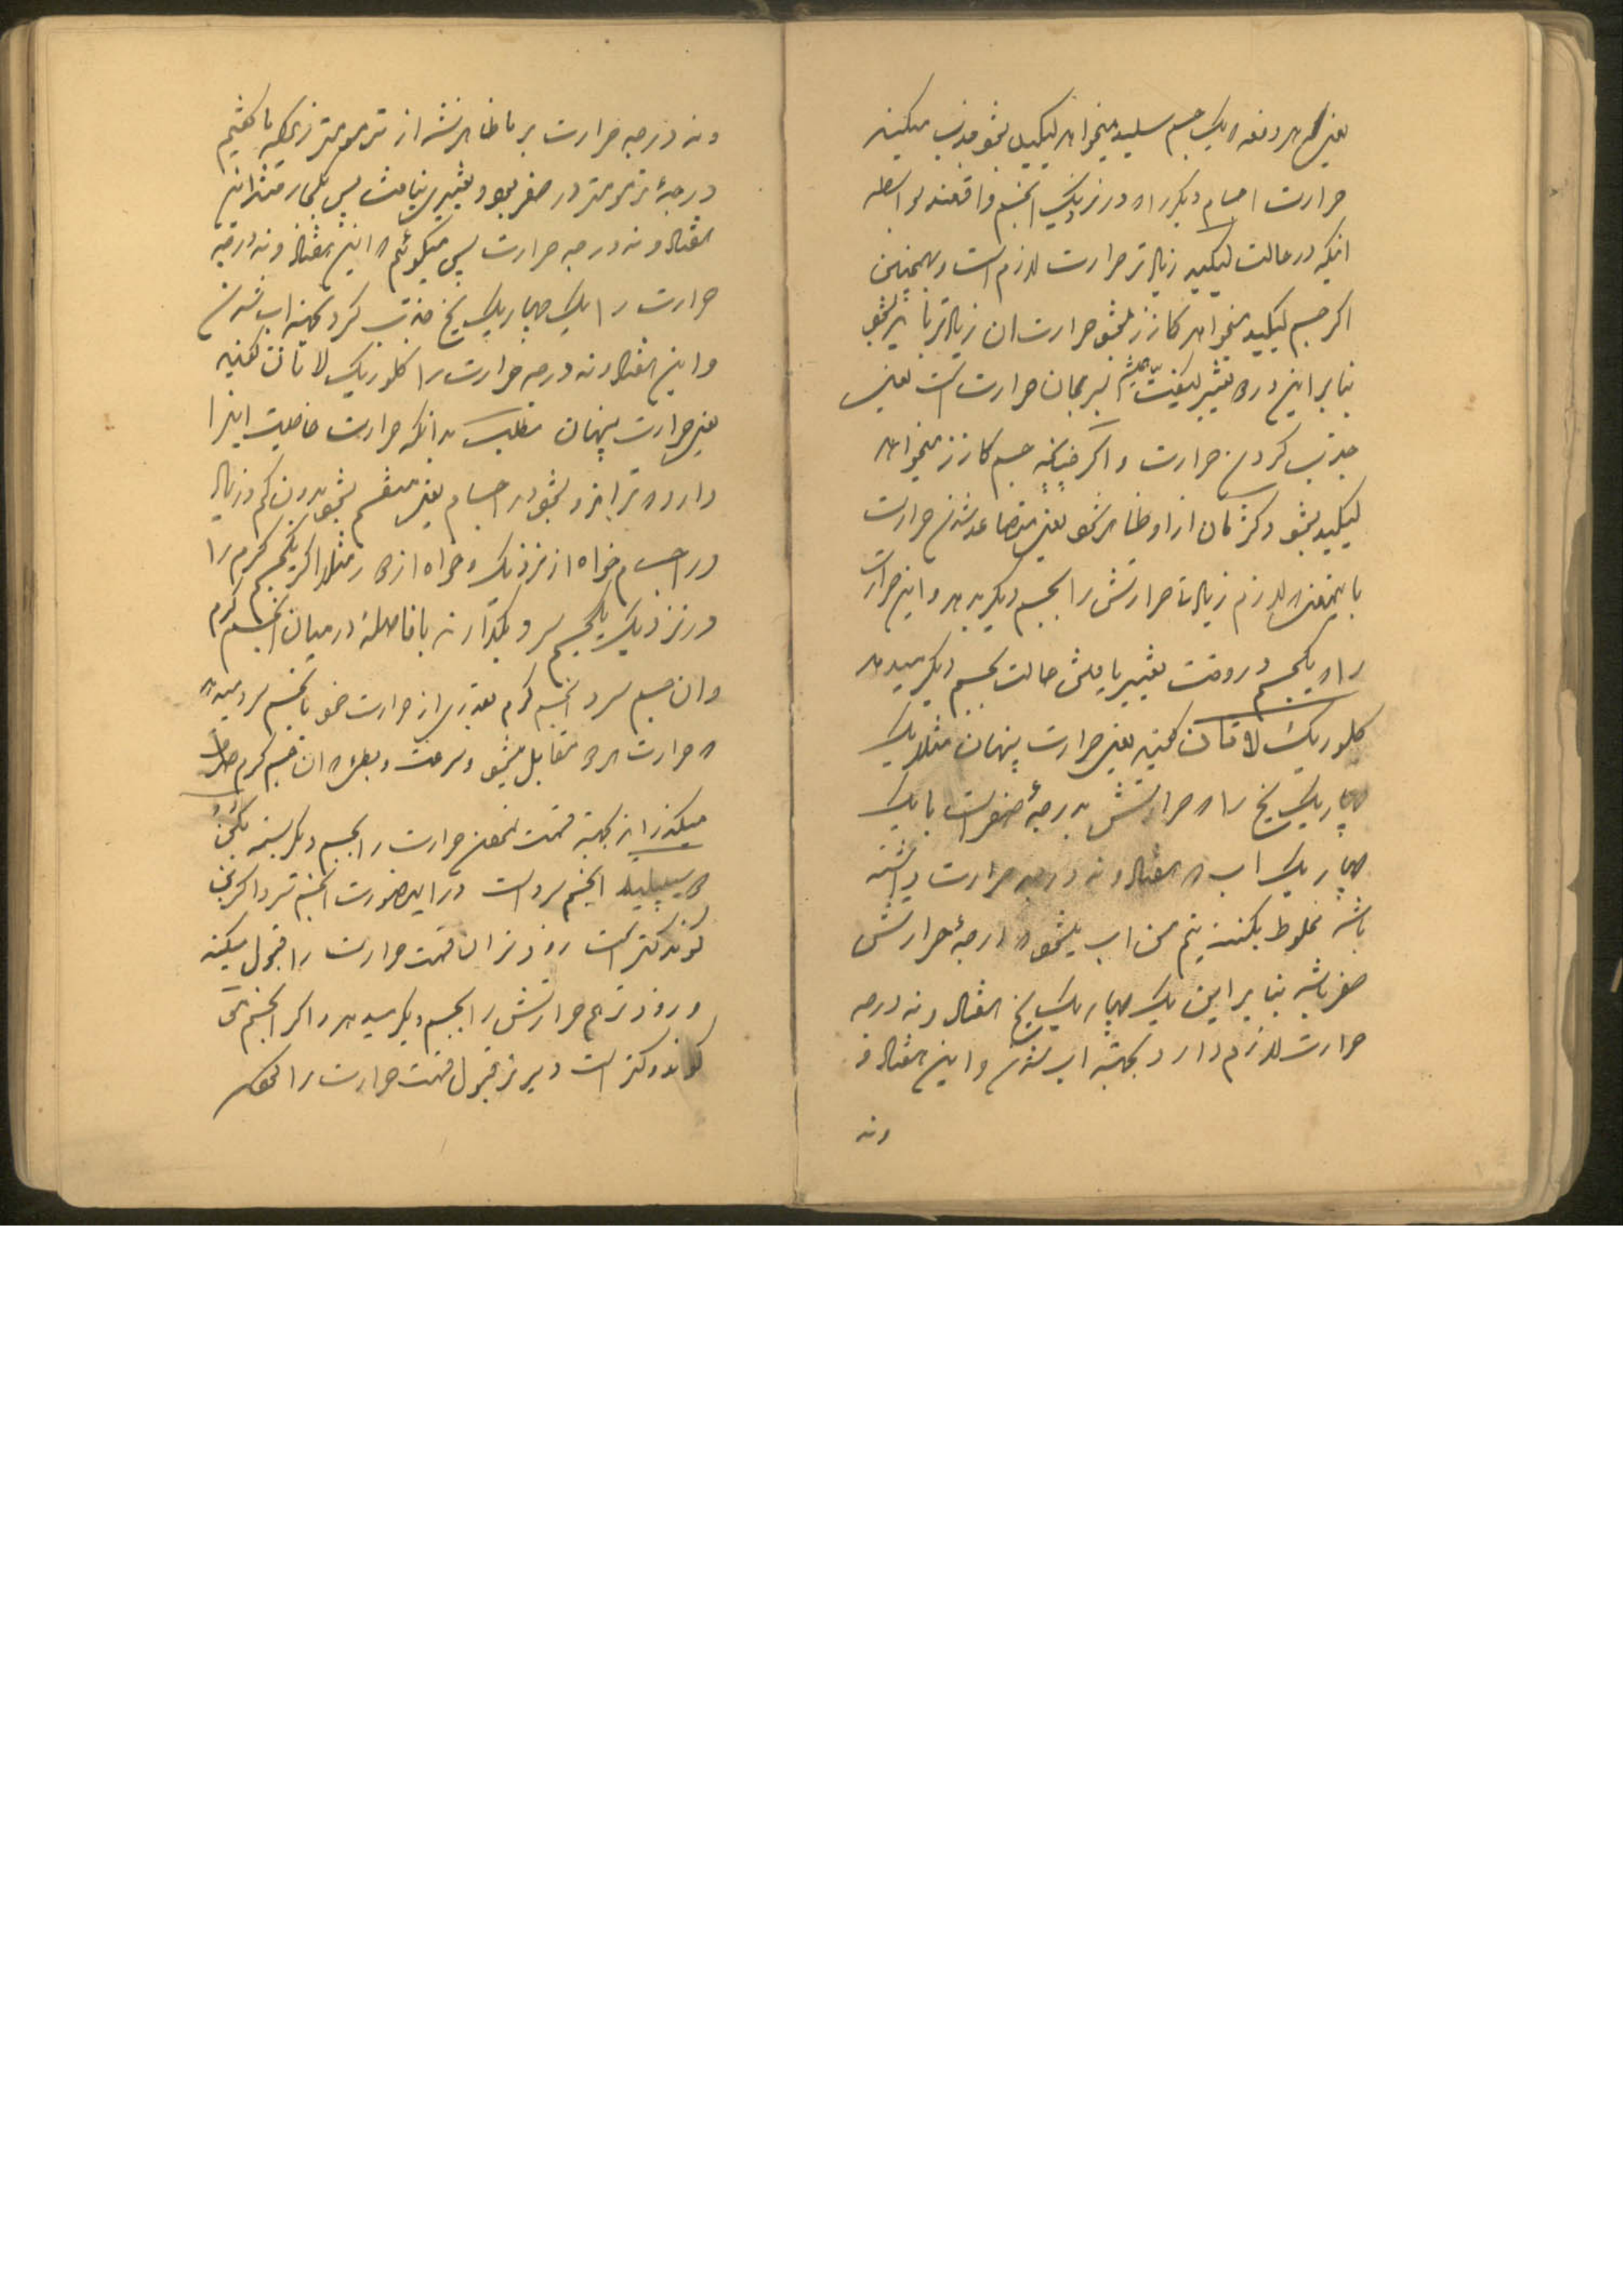 یعنی هر دفعه که یک جسم سلید میخواهد لیکید بشود جذب میکند
حرارت اجسام دیگر را که در نزدیک انجسم واقعند بواسطه
انکه در حالت لیکید زیادتر حرارت لازم است و همچنین
اکر جسم لیکید میخواهد کازز بشود حرارت ان زیادتر باید بشود
بنابراین در تغییر کیفیت جسم بر همان حرارت است یعنی
جذب کردن حرارت و اکر چنانچه جسم کازز میخواهد
لیکید بشود دکژمان از او ظاهر شود یعنی متصاعد شدن حرارت
باینمعنی که لازم زیادتی حرارتش را بجسم دیکر بدهد و این حرارت
را که یکجسم در وقت تغییر یافتن حالت بجسم دیکر میدهد
کلوریک لاتان کویند یعنی حرارت پنهان مثلا یک
چهاریک یخ را که حرارتش بدرجهٔ صفر است با یک
چهاریک اب که هفتاد و نه درجه حرارت داشته
باشد مخلوط بکنند نیم من اب میشود که درجهٔ حرارتش
صفر باشد بنابر این یک چهاریک یخ هفتاد و نه درجه
حرارت لازم دارد بجهته اب شدن و این هفتاد و
ونه
ونه درجه حرارت بر ما ظاهر نشد از ترمومتر زیراکه ما کفتیم
درجهٔ ترمومتر در صفر بود و تغییری نیافت پس بکار رفتند این
هفتاد و نه درجه حرارت پس میکوئیم که این هفتاد و نه درجه
حرارت را یک چهاریک یخ جذب کرد بجهته اب شدن
و این هفتاد و نه درجه حرارت را کلوریک لاتانت کویند
یعنی حرارت پنهان مطلب بدانکه حرارت خاصیت اینرا
دارد که ترانزو بشود در اجسام یعنی منقسم بشود بدون کم و زیاد
در اجسام خواه از نزدیک و خواه از دور مثلا اکر یکجسم کرم را
در نزدیک یکجسم سرد بکذارند با فاصلهٔ در میان انجسم کرم
وان جسم سرد انجسم کرم بقدری از حرارت خود بانجسم سرد میدهد
که حرارت هر دو مقابل میشود و سرعت و بطؤ که ان جسم کرم حرارت
میکذراند بجهته قسمت نمودن حرارت را بجسم دیکر بسته بکن
دوسیبیلیته انجسم سرد است در این صورت انجسم سرد اکر بن
کوندکتر است زودتر ان قسمت حرارت را قبول میکند
و زودتر هم حرارتش را بجسم دیکر میدهد و اکر انجسم مو
کوندوکتر است دیرتر قبول قسمت حرارت را نموده